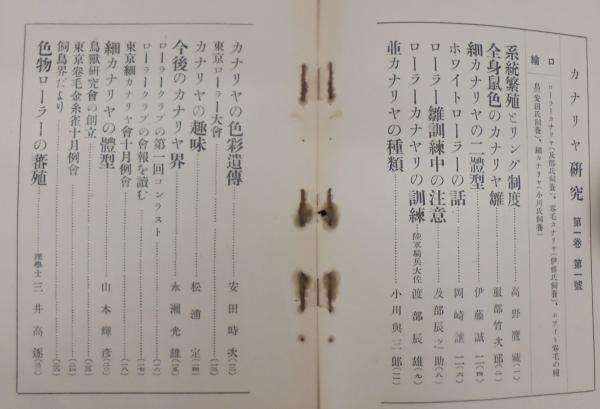 カナリヤ研究 第一卷 第一號
口繪
ローラーカナリヤ(及部氏飼養)、卷毛カナリヤ(伊藤氏飼養)、ホワイト卷毛の親
鳥(安田氏飼養)、細カナリヤ(小川氏飼養)
系統繁殖とリング制度 高野鷹藏(一)
全身鼠色のカナリヤ雛 服部竹次郎(二)
細カナリヤの二體型 伊藤誠一(四)
ホワイトローラーの話 岡崎讓二(六)
ローラー雛訓練中の注意 及部辰之助(八)
ローラーカナヤリの訓練 陸軍騎兵大佐 渡部辰雄(九)
並カナリヤの種類 小川與三郎(一一)
カナリヤの色彩遺傳 安田時次
東京ローラー大會
カナリヤの趣味 松浦定
今後のカナリヤ界 永瀬光雄
ローラークラブの第一回コンテスト
ローラークラブの會報を讀む
東京細カナリヤ會十月例會
細カナリヤの體型 山本輝彦
鳥獸研究會の創立
東京卷毛金糸雀十月例會
飼鳥界だより
色物ローラーの蕃殖 理學士 三井高遂